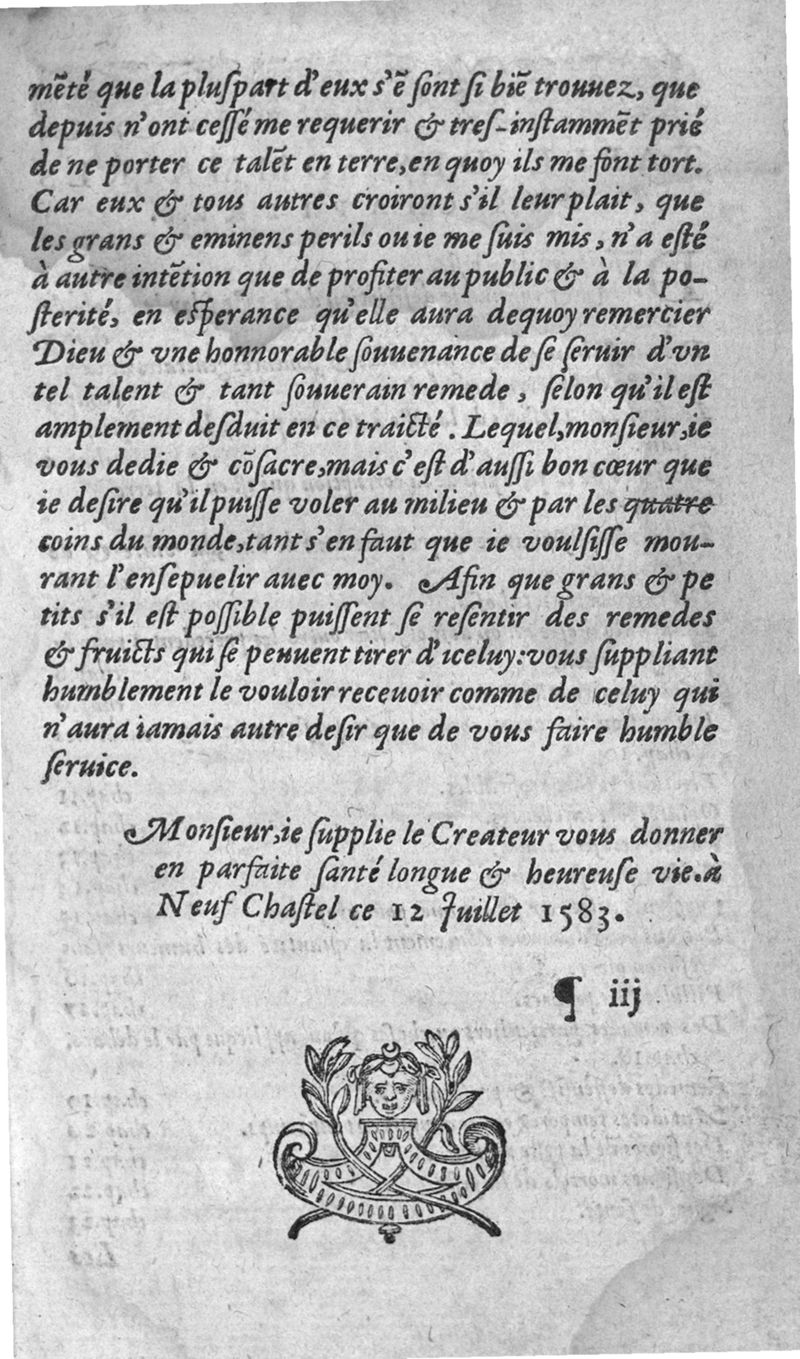 mẽté que la pluſpart d'eux s'ẽ ſont ſi biẽ trouuez, que
depuis n'ont ceſſé me requerir & treſ-inſtammẽt prié
de ne porter ce talẽt en terre, en quoy ils me font tort.
Car eux & tous autres croiront s'il leur plait, que
les grans & eminens perils ou ie me ſuis mis, n'a eſté
à autre intẽtion que de profiter au public & à la po-
ſterité, en eſperance qu'elle aura dequoy remercier
Dieu & vne honnorable ſouuenance de ſe ſeruir d'vn
tel talent & tant ſouuerain remede, ſelon qu'il eſt
amplement deſduit en ce traicté. Lequel, monſieur, ie
vous dedie & cõſacre, mais c'eſt d'auſſi bon cœur que
ie deſire qu'il puiſſe voler au milieu & par les quatre
coins du monde, tant s'en faut que ie voulſiſſe mou-
rant l'enſepuelir auec moy. Afin que grans & pe
tits s'il eſt poſſible puiſſent ſe reſentir des remedes
& fruicts qui ſe peuuent tirer d'iceluy: vous ſuppliant
humblement le vouloir receuoir comme de celuy qui
n'aura iamais autre deſir que de vous faire humble
ſeruice.
Monſieur, ie ſupplie le Createur vous donner
en parfaite ſanté longue & heureuſe vie. à
Neuf Chaſtel ce 12 Juillet 1583.
¶ iij